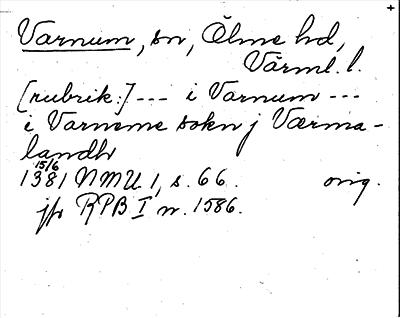 Varnum, sn, Ölme hd,
Värml. l.
[rubrik:] --- i Varnum ---
i Varneme sokn j Værma-
landh
15/6
1381 NMU 1, s. 66. orig.
jfr RPB I nr. 1586.